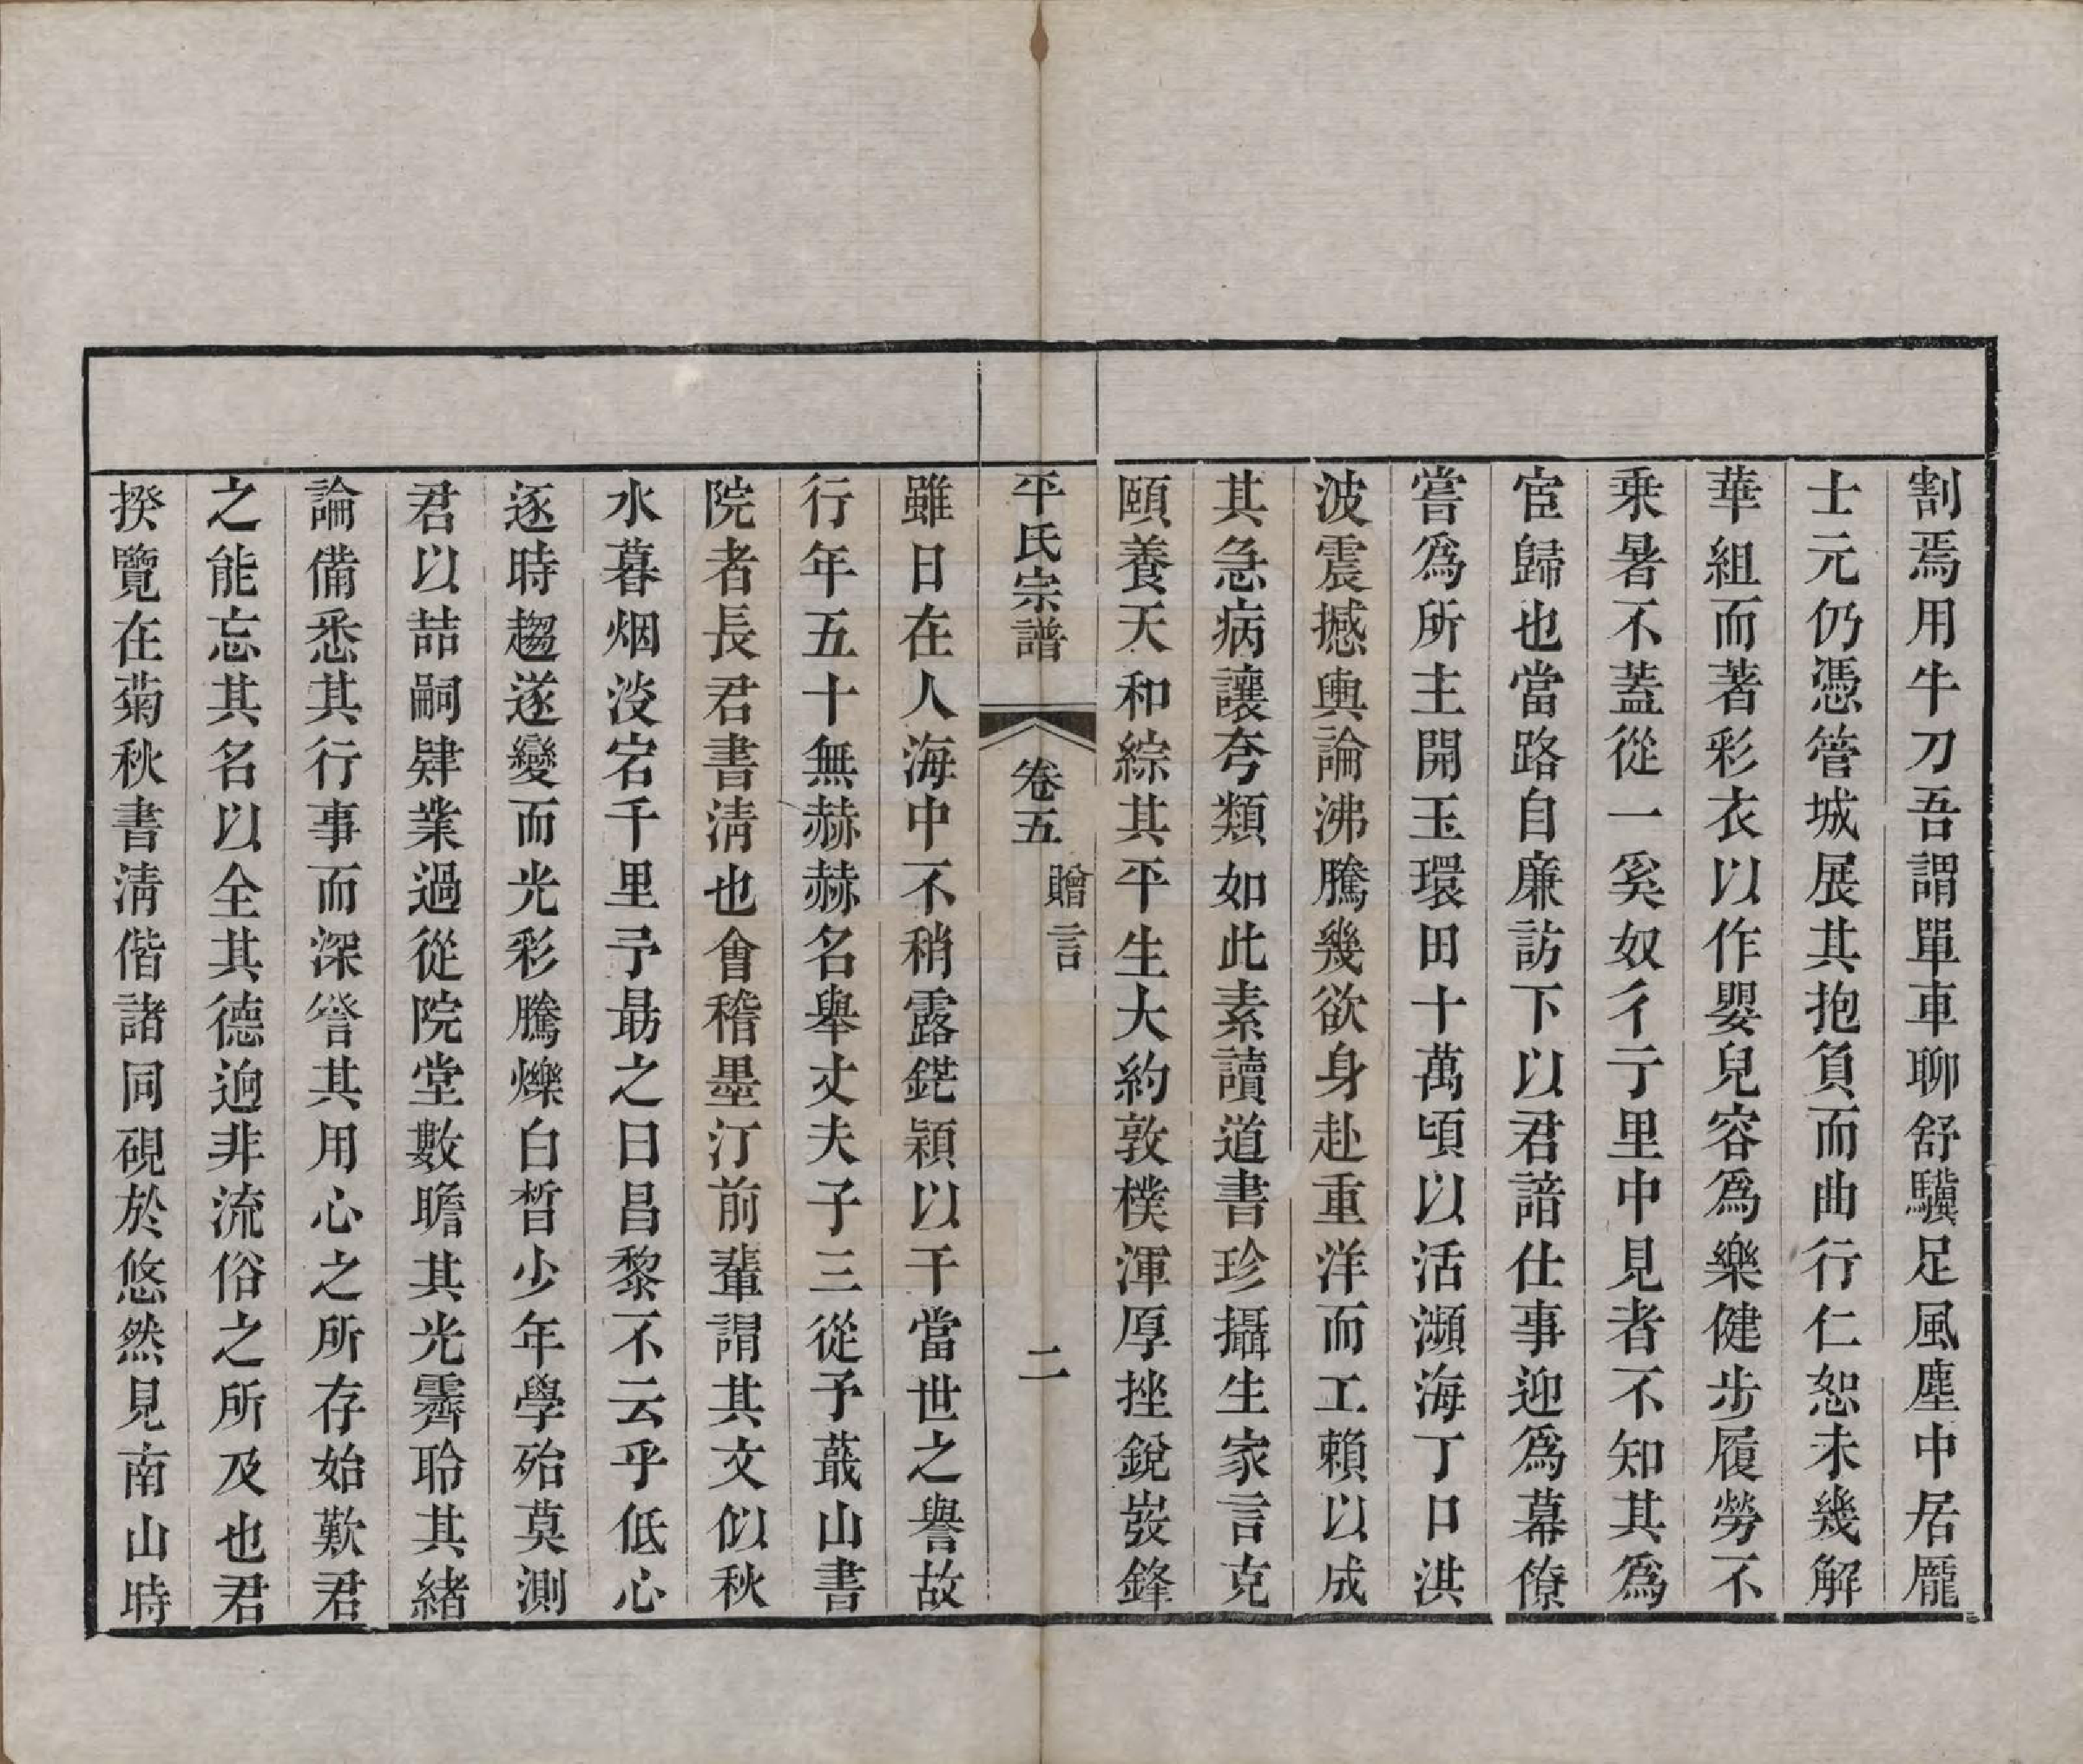 割焉用牛刀吾謂單車聊舒驥足風塵中居龎
士元仍憑管城展其抱負而曲行仁恕未幾解
華組而著彩衣以作嬰兒容爲樂健步履勞不
乘暑不蓋從一奚奴彳亍里中見者不知其爲
宦歸也當路自廉訪下以君諳仕事迎爲幕僚
嘗爲所主開玉環田十萬頃以活瀕海丁口洪
波震撼輿論沸騰幾欲身赴重洋而工賴以成
其急病讓夸類如此素讀道書珍攝生家言克
頤養天和綜其平生大約敦樸渾厚挫銳敛鋒
平氏宗譜 卷五 贈言 二
雖日在人海中不稍露鋩穎以干當世之譽故
行年五十無赫赫名舉丈夫子三從予蕺山書
院者長君書淸也會稽墨汀前輩謂其文似秋
水暮烟沒宕千里予勗之曰昌黎不云乎低心
逐時趨遂變而光彩騰爍白晳少年學殆莫測
君以喆嗣肄業過從院堂數瞻其光霽聆其緒
論備悉其行事而深詧其用心之所存始歎君
之能忘其名以全其德逈非流俗之所及也君
揆覽在菊秋書淸偕諸同硯於悠然見南山時